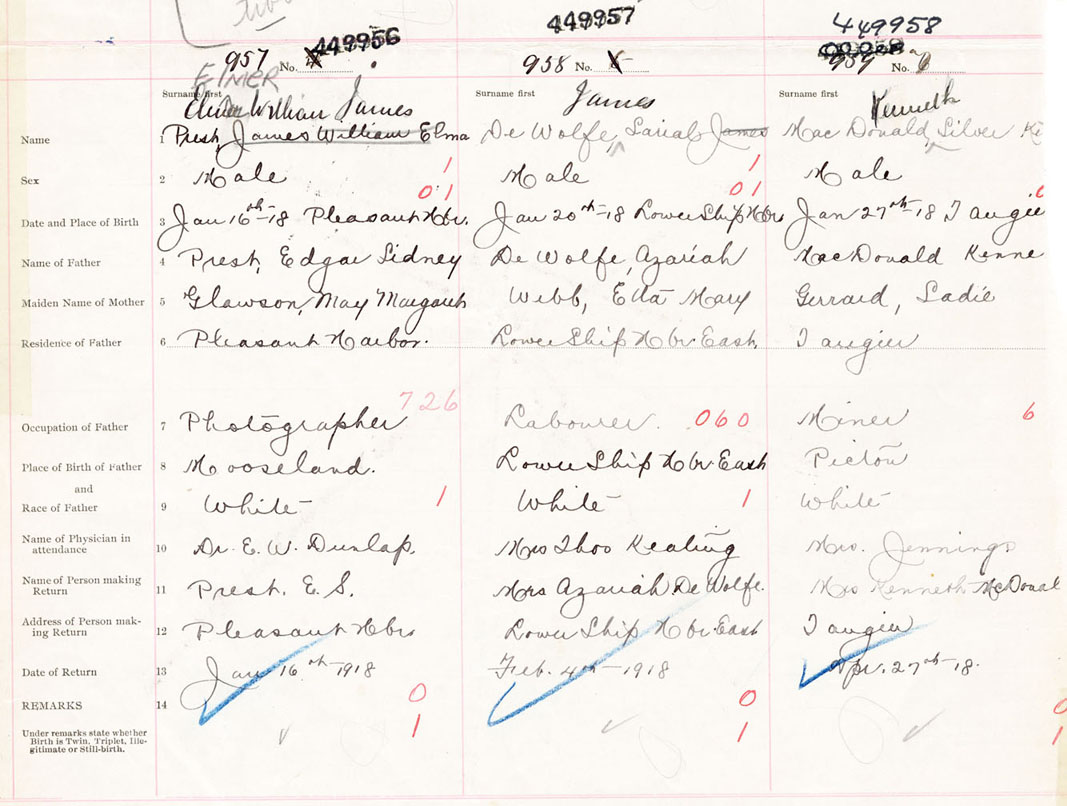 449956 449957 449958
957 No. 958 No. 959 No.
ELMER
Surname first Surname first Surname first
William James James Kenneth
Name 1 Prest, James William Elma De Wolfe, James Mac Donald, Silver
Sex 2 Male 1 Male 1 Male
01 01
Date and Place of Birth 3 Jan 16th-18 Pleasant Hbr. Jan 20th-18 Lower Ship Hbr Jan 27th-18 Tangier
Name of Father 4 Prest, Edgar Sidney De Wolfe, Azariah MacDonald Kenne
Maiden Name of Mother 5 Glawson, May Margaret Webb, Etta Mary Gerrard, Sadie
Residence of Father 6 Pleasant Harbor. Lower Ship Hbr. East. Tangier
726
Occupation of Father 7 Photographer Labourer. 060 Miner 6
Place of Birth of Father 8 Mooseland. Lower Ship Hbr. East Pictou
and
Race of Father 9 White 1 White 1 White
Name of Physician in
attendance 10 Dr. E. W. Dunlap. Mrs Thos Keating Mrs. Jennings
Name of Person making
Return 11 Prest. E. S. Mrs Azariah De Wolfe. Mrs Kenneth McDonal
Address of Person mak-
ing Return 12 Pleasant Hbr Lower Ship Hbr East Tangier
Date of Return 13 Jan 16th 1918 Feb. 4th-1918 Apr. 27th-18.
REMARKS 14 0 0 0
Under remarks state whether
Birth is Twin, Triplet, Ille-
gitimate or Still-birth. 1 1 1